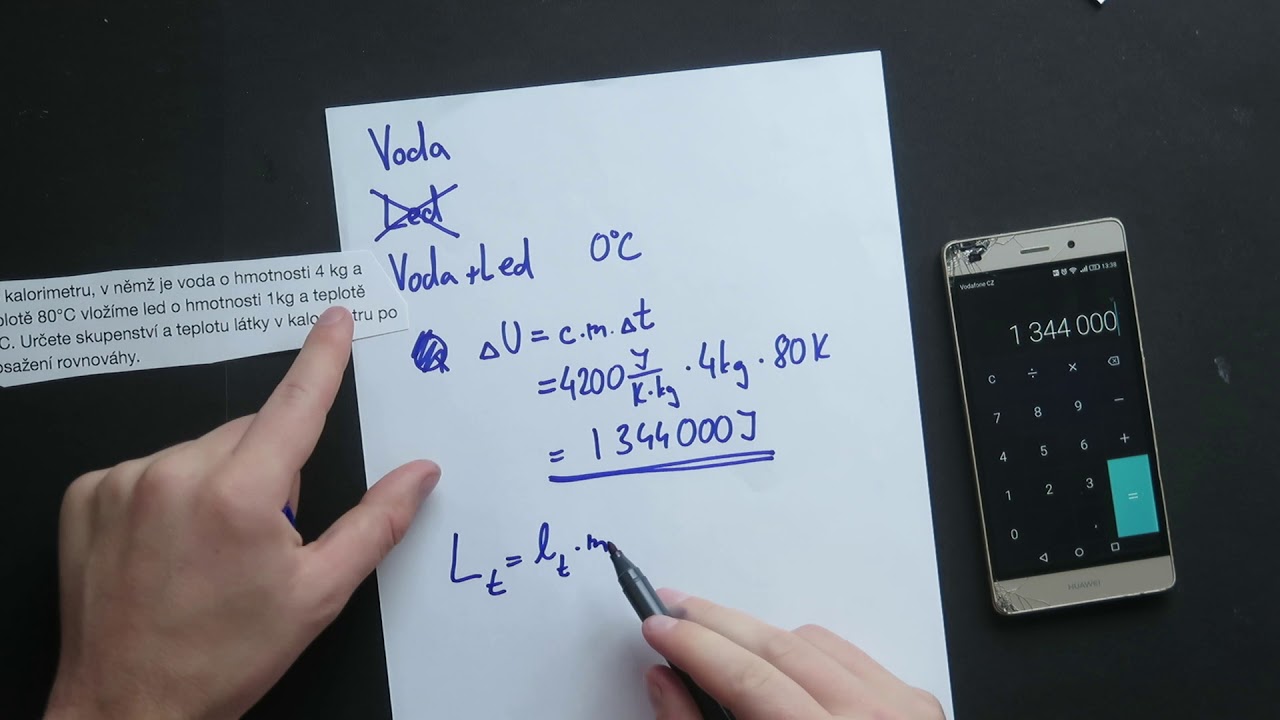 Voda
Led
Voda + Led 0°C
ΔU = c.m.Δt
= 4200 J/K·kg · 4kg · 80K
= 1 344 000 J
L_t = l_t · m
kalorimetru, v němž je voda o hmotnosti 4 kg a
plotě 80°C vložíme led o hmotnosti 1kg a teplotě
°C. Určete skupenství a teplotu látky v kalo tru po
osažení rovnováhy.
Vodafone CZ 13:38
1 344 000
C ÷ ×
7 8 9 −
4 5 6 +
1 2 3 =
0 ,
HUAWEI